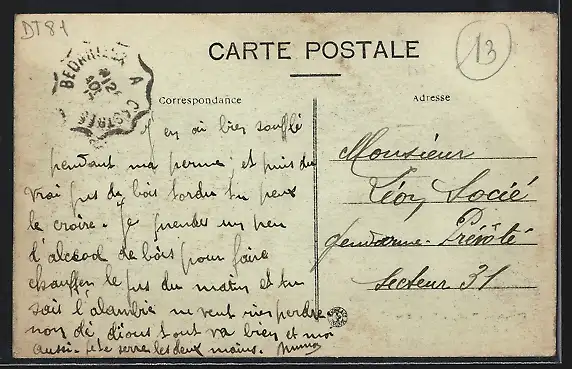 DT81
13
CARTE POSTALE
BEDARIEUX A CASTRES
Correspondance
Adresse
J'en ai bien soufflé
pendant ma perme; et puis du
vrai jus de bois tordu tu peux
le croire. Je prendes un peu
d'alcool de bois pour faire
chauffer le jus du matin et tu
sais l'alambic ne veut rien perdre
non dé dious tout va bien et moi
aussi. Je te serre les deux mains.
Monsieur
Léon Socié
gendarme. Prévôté
Secteur 31